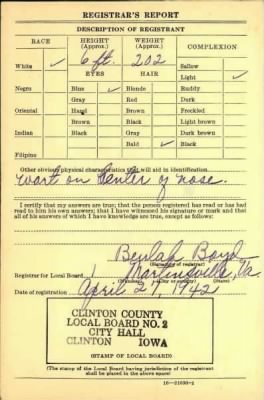 REGISTRAR'S REPORT
DESCRIPTION OF REGISTRANT
RACE HEIGHT (Approx.) WEIGHT (Approx.) COMPLEXION
6 ft. 202
White ✓ EYES HAIR Sallow
Light ✓
Negro Blue ✓ Blonde Ruddy
Gray Red Dark
Oriental Hazel Brown Freckled
Brown Black Light brown
Indian Black Gray Dark brown
Bald ✓ Black
Filipino
Other obvious physical characteristics that will aid in identification.
Wart on Center of nose.
I certify that my answers are true; that the person registered has read or has had
read to him his own answers; that I have witnessed his signature or mark and that
all of his answers of which I have knowledge are true, except as follows:
Beulah Boyd
(Signature of registrar)
Registrar for Local Board Martinsville, Va.
(Number) (City or county) (State)
Date of registration April 27, 1942
CLINTON COUNTY
LOCAL BOARD NO. 2
CITY HALL
CLINTON IOWA
(STAMP OF LOCAL BOARD)
(The stamp of the Local Board having jurisdiction of the registrant
shall be placed in the above space)
16—21630-2